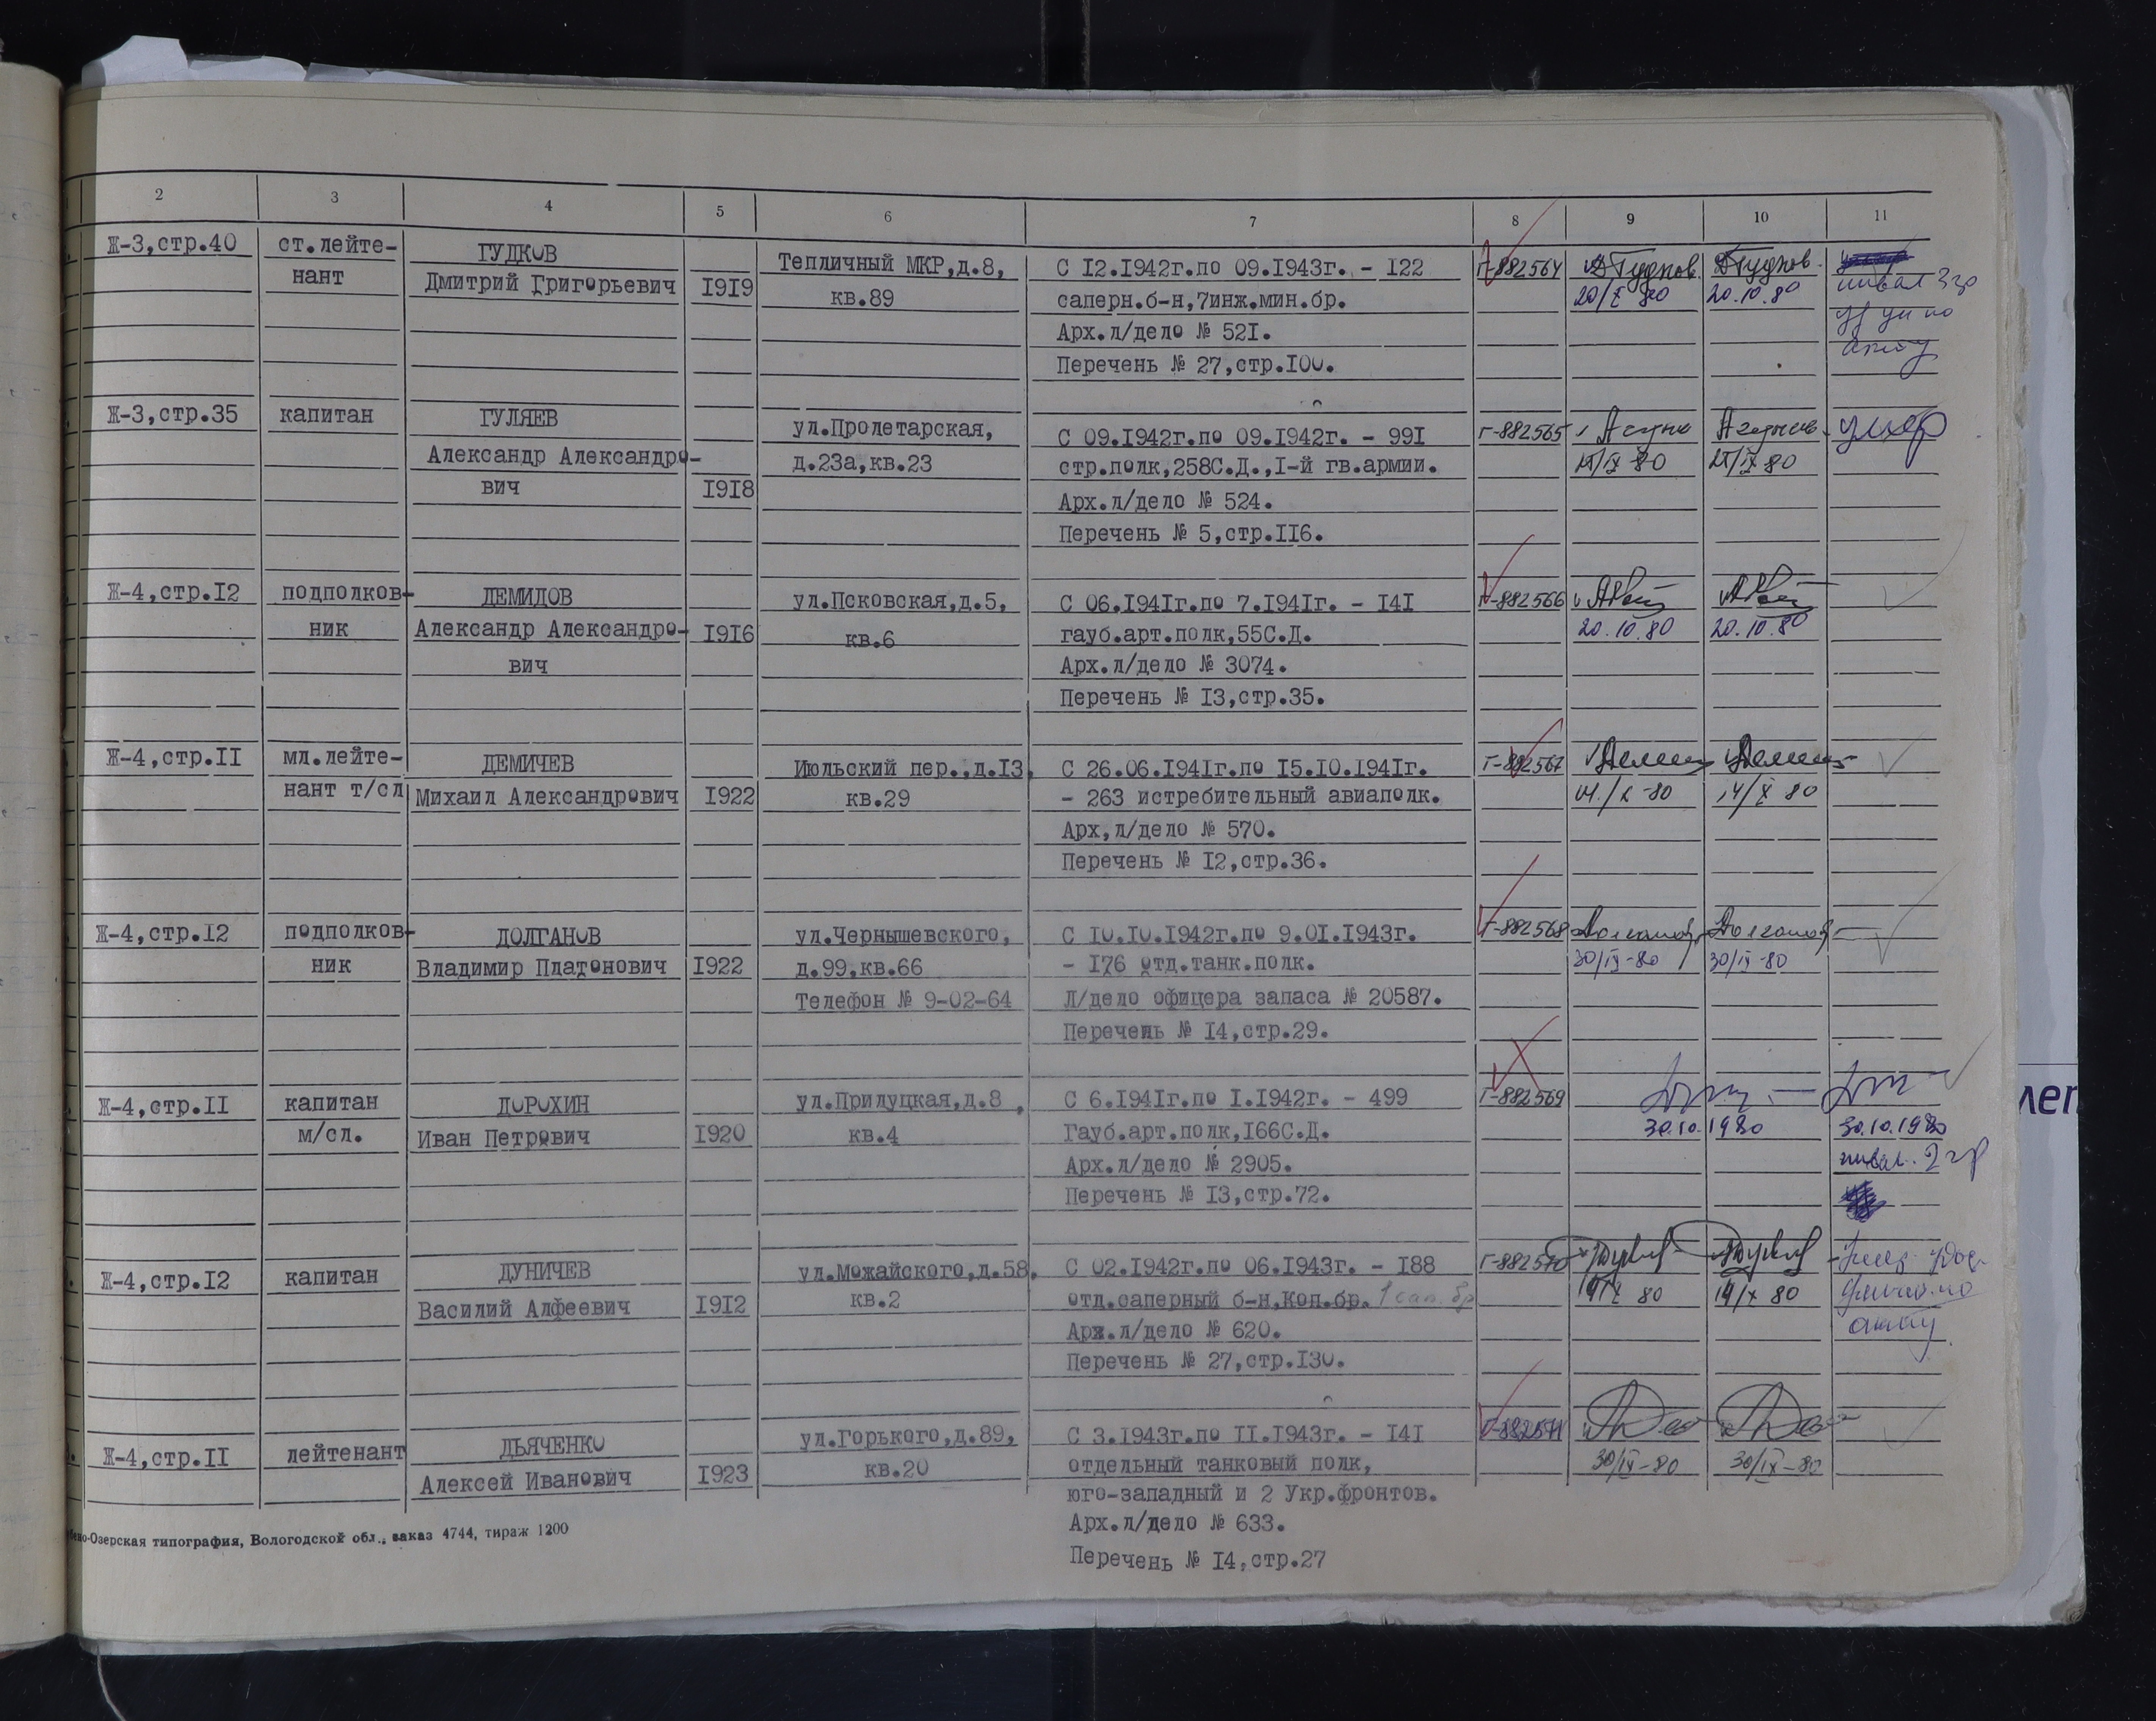 2 3 4 5 6 7 8 9 10 11
Ж-3,стр.40 ст.лейте- ГУДКОВ Тепличный МКР,д.8, С I2.I942г.по 09.I943г. - I22 Г-882564 Гудков Гудков
нант Дмитрий Григорьевич I9I9 кв.89 саперн.б-н,7инж.мин.бр. 20/X 80 20.10.80 инвал 3гр
Арх.л/дело № 52I.
Перечень № 27,стр.I00.
Ж-3,стр.35 капитан ГУЛЯЕВ ул.Пролетарская, С 09.I942г.по 09.I942г. - 99I Г-882565 умер
Александр Александро- д.23а,кв.23 стр.полк,258С.Д.,I-й гв.армии.
вич I9I8 Арх.л/дело № 524.
Перечень № 5,стр.II6.
Ж-4,стр.I2 подполков- ДЕМИДОВ ул.Псковская,д.5, С 06.I94Iг.по 7.I94Iг. - I4I Г-882566
ник Александр Александро- I9I6 кв.6 гауб.арт.полк,55С.Д. 20.10.80 20.10.80
вич Арх.л/дело № 3074.
Перечень № I3,стр.35.
Ж-4,стр.II мл.лейте- ДЕМИЧЕВ Июльский пер.,д.I3, С 26.06.I94Iг.по I5.I0.I94Iг. Г-882567
нант т/сл Михаил Александрович I922 кв.29 - 263 истребительный авиаполк. 14/X 80
Арх,л/дело № 570.
Перечень № I2,стр.36.
Ж-4,стр.I2 подполков- ДОЛГАНОВ ул.Чернышевского, С I0.I0.I942г.по 9.0I.I943г. Г-882568 Долганов Долганов
ник Владимир Платонович I922 д.99,кв.66 - I76 отд.танк.полк. 30/IX-80 30/IX-80
Телефон № 9-02-64 Л/дело офицера запаса № 20587.
Перечень № I4,стр.29.
Ж-4,стр.II капитан ДОРОХИН ул.Прилуцкая,д.8, С 6.I94Iг.по I.I942г. - 499 Г-882569
м/сл. Иван Петрович I920 кв.4 Гауб.арт.полк,I66С.Д. 30.10.1980 30.10.1980
Арх.л/дело № 2905. инвал. 2 гр
Перечень № I3,стр.72.
Ж-4,стр.I2 капитан ДУНИЧЕВ ул.Можайского,д.58, С 02.I942г.по 06.I943г. - I88 Г-882570
Василий Алфеевич I9I2 кв.2 отд.саперный б-н,Кон.бр. 1 сап. бр 14/X 80 14/X 80
Арх.л/дело № 620. акту
Перечень № 27,стр.I30.
Ж-4,стр.II лейтенант ДЬЯЧЕНКО ул.Горького,д.89, С 3.I943г.по II.I943г. - I4I Г-882571
Алексей Иванович I923 кв.20 отдельный танковый полк, 30/IX-80 30/IX-80
юго-западный и 2 Укр.фронтов.
Арх.л/дело № 633.
Перечень № I4,стр.27
Озерская типография, Вологодской обл., заказ 4744, тираж 1200